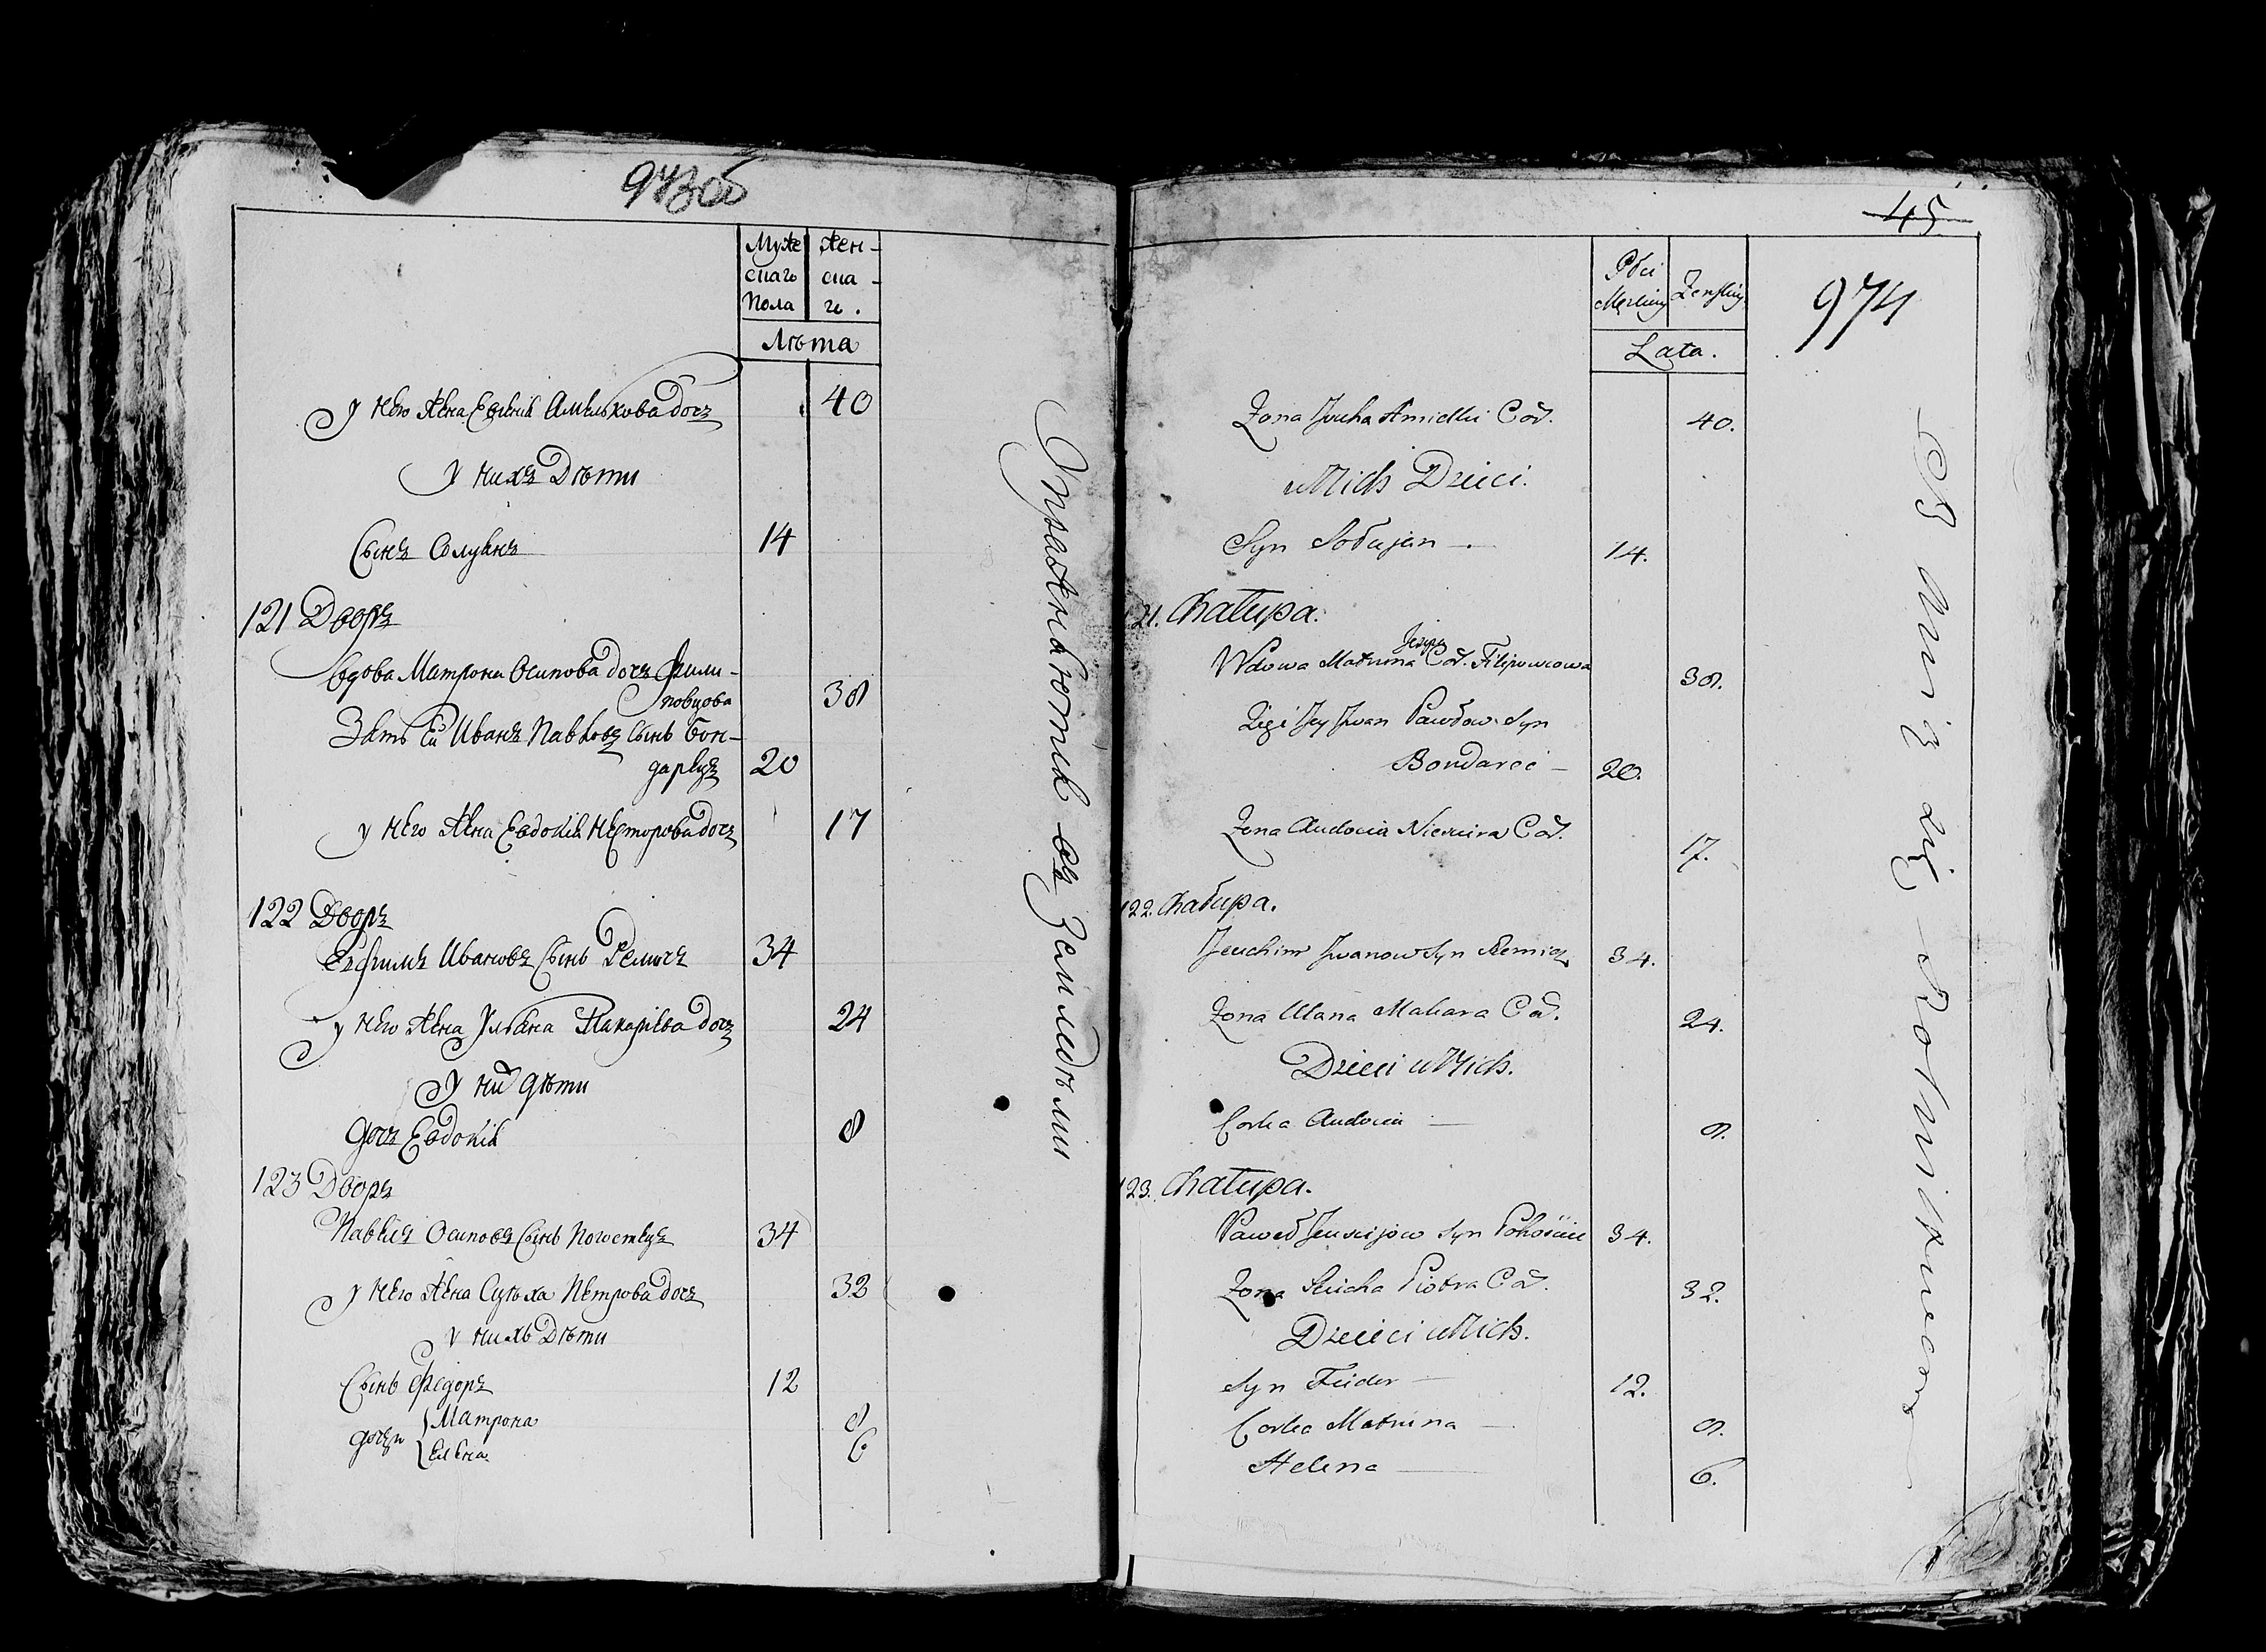 973об
Муже
скаго
Пола
жен-
ска-
го.
Лѣта
у него жена Евгенія Амелькова дочь 40
у нихъ Дѣти
Сынъ Солуянъ 14
121 Дворъ
Вдова Матрона Осипова дочь Фили-
повцова 38
Зять Ей Иванъ Павловъ Сынъ Бон-
дарецъ 20
у него жена Евдокія Несторова дочь 17
122 Дворъ
Евфимъ Ивановъ Сынъ 34
у него жена Ульяна Макарѣева дочь 24
у ни дѣти
дочь Евдокія 8
123 Дворъ
Павелъ Осиповъ Сынъ 34
у него жена Петрова дочь 32
у нихъ Дѣти
Сынъ Федоръ 12
дочери Матрона 8
Елена 6
Упражняются въ Земледѣліи
45
974
Płci
Męskiey
Żenskiey
Lata.
Żona Amielki Cór. 40.
u Nich Dzieci.
Syn 14.
21. Chałupa.
Wdowa Matruna Cór. Filipowcowa 38.
Zięć Jey Jwan Pawłow Syn
Bondarec 20.
Żona Audocia Cór. 17.
122. Chałupa.
Jeuchim Jwanow Syn 34.
Żona Ulana Makara Cór. 24.
Dzieci u Nich.
Corka Audocia 8.
123. Chałupa.
Paweł Syn 34.
Żona Piotra Cór. 32.
Dzieci u Nich.
Syn Fiedor 12.
Corka Matruna 8.
Helena 6.
Rolnictwem